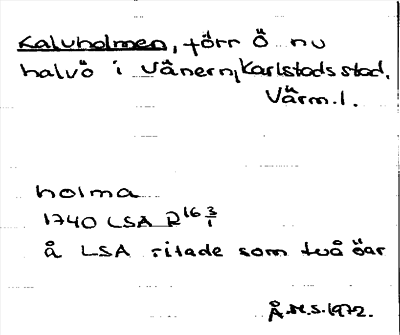 Kalvholmen, förr ö nu
halvö i Vänern, Karlstads stad,
Värm. l.
holma
1740 LSA R16 3/1
å LSA ritade som två öar
Å.M.S. 1972.